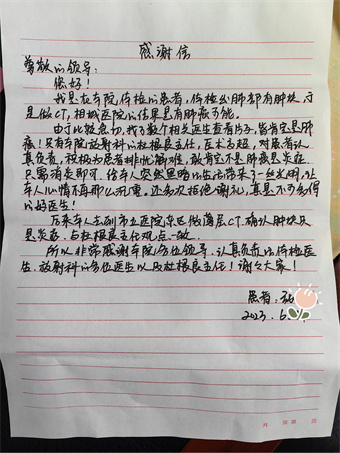 感谢信
尊敬的领导：
您好！
我是在本院体检的患者，体检出肺部有肿块，于
是做CT，相城医院的结果是有肺癌可能。
由于比较急切，我了数个相关医生查看片子，皆肯定是肺
癌！只有本院放射科的杜根良主任，医术高超，对患者认
真负责，积极为患者排忧解难，敢肯定不是肺癌是炎症
只需消炎即可，给本人突然黑暗的生活带来了一丝光明，让
本人心情不再那么沉重。还多次拒绝谢礼，真是不可多得
的好医生！
后来本人去到市立医院东区做薄层CT，确认肿块只
是炎症，与杜根良主任观点一致。
所以非常感谢本院各位领导、认真负责的体检医
生、放射科的各位医生以及杜根良主任！谢谢大家！
患者：张
2023.6.
月 第 页